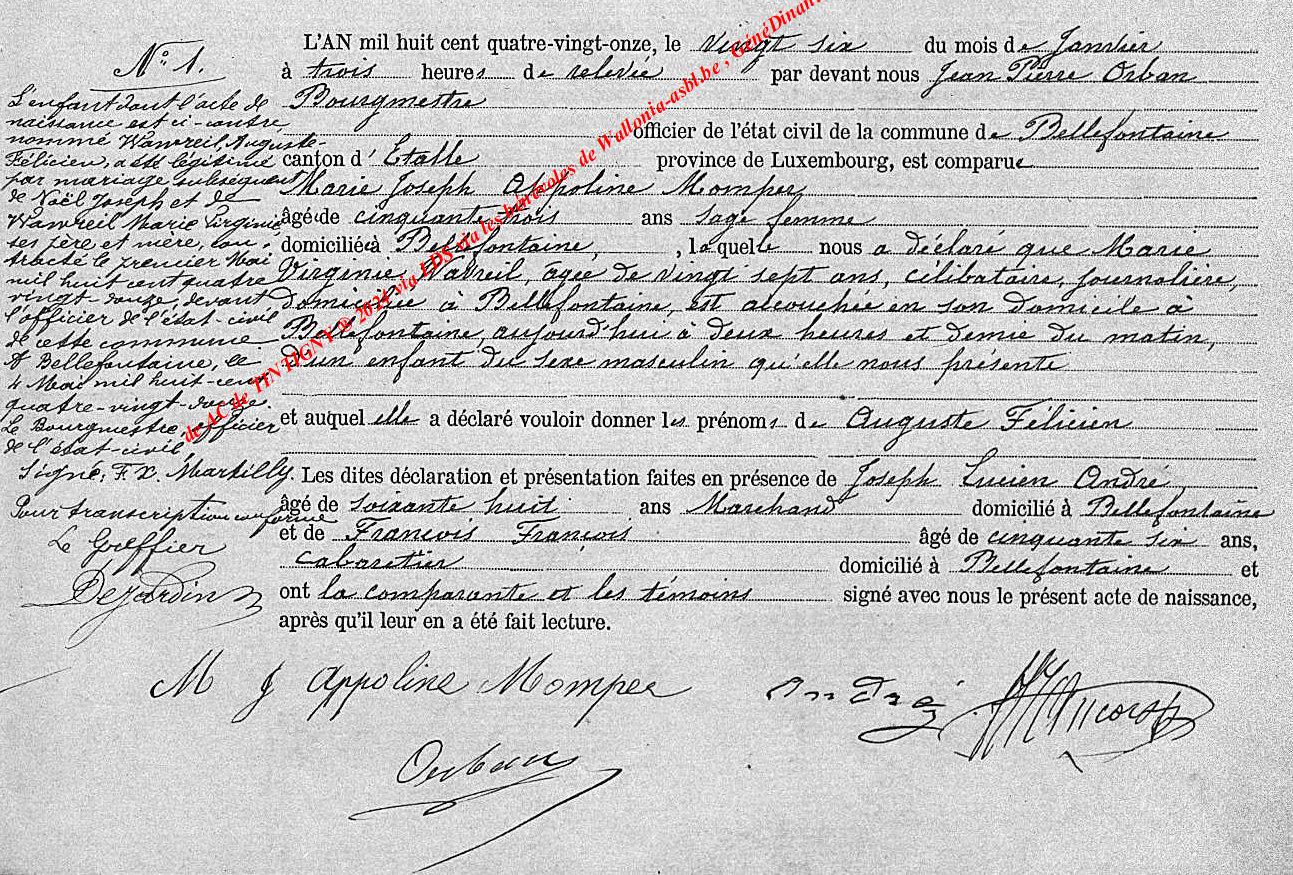 N° 1.
L'enfant dont l'acte de
naissance est ci-contre,
nommé Wavreil, Auguste-
Félicien, a été légitimé
par mariage subséquent
de Noël Joseph et de
Wavreil Marie Virginie
ses père et mère, con-
tracté le premier Mai
mil huit cent quatre
vingt-douze, devant
l'officier de l'état-civil
de cette commune
A Bellefontaine, le
4 Mai mil huit-cent
quatre-vingt-douze.
Le Bourgmestre, officier
de l'état-civil,
Signé, F. X. Martilly.
Pour transcription conforme
Le Greffier
Dejardin
L'AN mil huit cent quatre-vingt-onze, le vingt six du mois de Janvier
à trois heures de relevée par devant nous Jean Pierre Orban
Bourgmestre
officier de l'état civil de la commune de Bellefontaine
canton d'Etalle province de Luxembourg, est comparue
Marie Joseph Appoline Momper,
âgée de cinquante trois ans sage femme
domiciliée à Bellefontaine, , laquelle nous a déclaré que Marie
Virginie Wavreil, âgée de vingt sept ans, célibataire, journalière,
domiciliée à Bellefontaine, est accouchée en son domicile à
Bellefontaine, aujourd'hui à deux heures et demie du matin,
d'un enfant du sexe masculin qu'elle nous présente
et auquel elle a déclaré vouloir donner les prénoms de Auguste Félicien
Les dites déclaration et présentation faites en présence de Joseph Lucien André,
âgé de soixante huit ans Marchand domicilié à Bellefontaine
et de François François âgé de cinquante six ans,
cabaretier domicilié à Bellefontaine et
ont la comparante et les témoins signé avec nous le présent acte de naissance,
après qu'il leur en a été fait lecture.
M J Appoline Momper André
Orban
de AC de TINTIGNY © 2024 via EDS via les bénévoles de Wallonia-asbl.be , GénéDinant